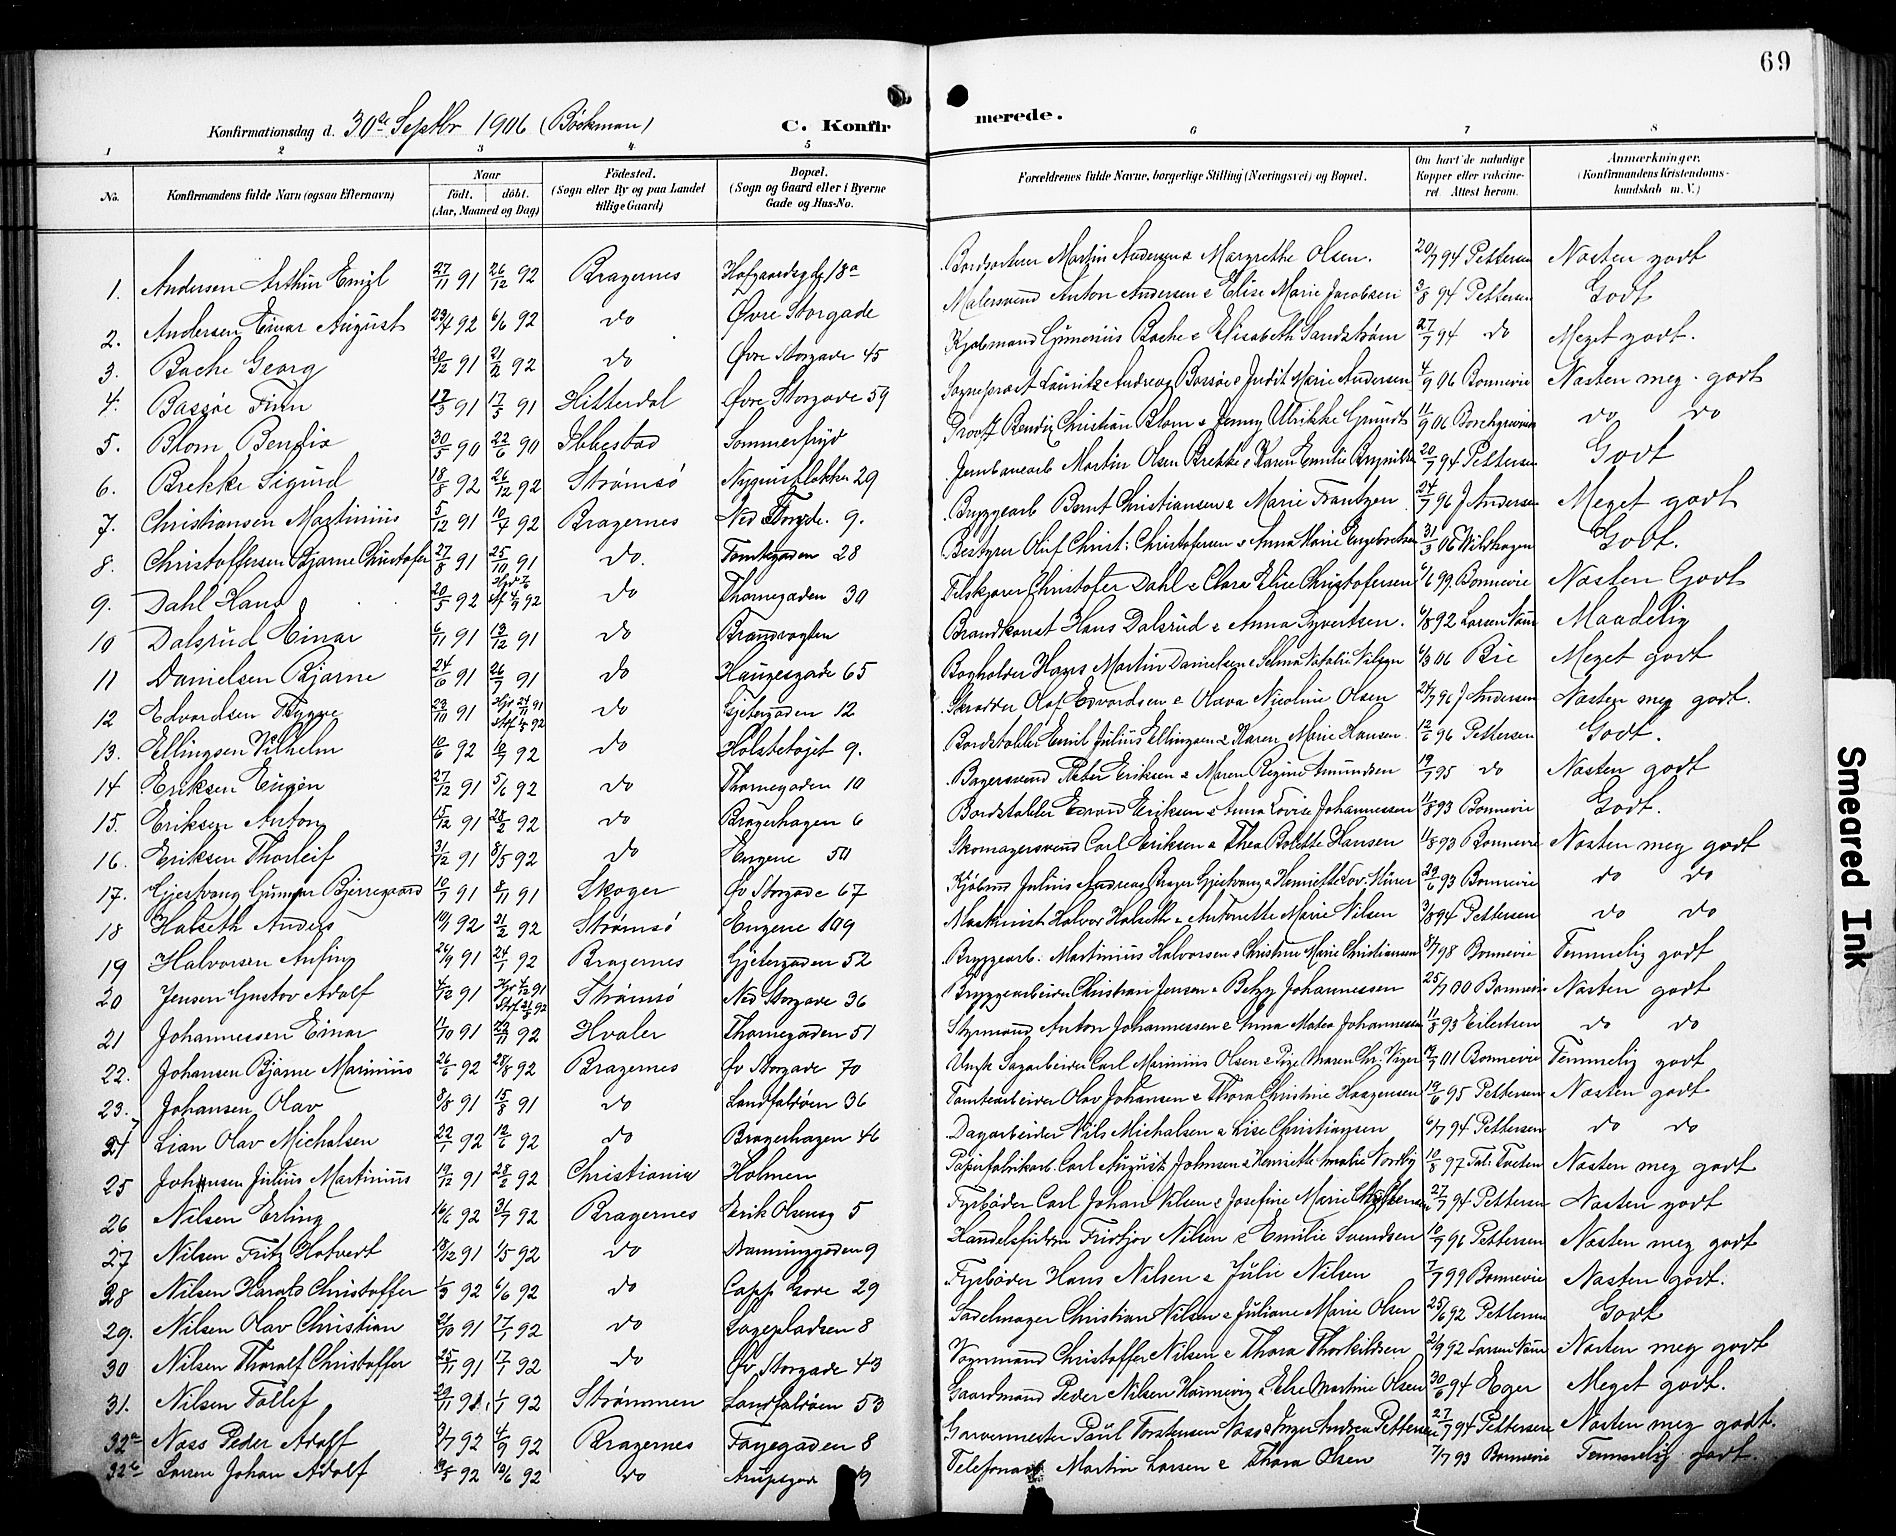 69
Konfirmationsdag d. 30te Septbr 1906 (Böckman)
C. Konfir
merede.
1 2 3 4 5 6 7 8
No. Konfirmandens fulde Navn (ogsaa Efternavn) Naar født. døbt. (Aar, Maaned og Dag) Fødested. (Sogn eller By og paa Landet tillige Gaard) Bopæl. (Sogn og Gaard eller i Byerne Gade og Hus-No. Forældrenes fulde Navne, borgerlige Stilling (Næringsvei) og Bopæl. Om havt de naturlige Kopper eller vakcineret. Attest herom. Anmærkninger. (Konfirmandens Kristendomskundskab m. V.)
1. Andersen Arthur Emil 27/11 91 26/12 92 Bragernes Hofgaardsgdg 18a Bordsorterer Martin Andersen & Margrethe Olsen. 20/7 94 Pettersen Næsten godt
2. Andersen Einar August 29/4 92 6/6 92 do Øvre Storgade Malersvend Anton Andersen & Elise Marie Jacobsen 3/8 94 Pettersen Godt
3. Bache Georg 20/12 91 21/2 92 do Øvre Storgade 45 Kjøbmand Gunerius Bache & Elisabeth Sandstrøm 27/7 94 do Meget godt.
4. Bassøe Finn 17/3 91 17/5 91 Hitterdal Øvre Storgade 59 Sogneprest Lauritz Andreas Bassøe & Judit Marie Andersen 4/9 06 Bonnevie Næsten meg. godt
5. Blom Bendix 30/5 90 22/6 90 Ibbestad Sommerfryd Provst Bendix Christian Blom & Jenny Ulrikke Grundt 11/9 06 Borchgrevink do do
6. Brekke Sigurd 18/8 92 26/12 92 Strømsø Nygaustløkken 29 Jernbanearb Martin Olsen Brekke & Karen Emilie Brynildsen 20/7 94 Pettersen Godt
7. Christiansen Martinius 5/12 91 10/7 92 Bragernes Ned Storgde. 9. Bryggearb Bernt Christiansen & Marie Frantzen 24/7 96 J Andersen Meget godt
8. Christoffersen Bjarne Christofer 27/8 91 25/10 91 do. Tomtegaden 28 Bestyrer Oluf Christ: Christofersen & Anna Marie Engebretsen 31/3 06 Wildhagen Godt.
9. Dahl Hans 20/5 92 Hjd 7/6 Stf 4/9 92 do Thornegaden 30 Filskjærer Christofer Dahl & Clara Elise Christofersen 6/6 99. Bonnevie Næsten Godt
10 Dalsrud Einar 6/11 91 13/12 91 do Brandvagten Brandkonst Hans Dalsrud & Anna Syvertsen. 6/8 92 Larsen Næss Maadelig
11 Danielsen Bjarne 24/6 91 26/7 91 do Haugesgade 65 Bogholder Hans Martin Danielsen & Selma Natalie Nilsen 6/3 06 Bie Meget godt
12 Edvardsen Trygve 29/10 91 Hjd 24/11 91 Stf 1/5 92 do Gjetergaden 12 Skrædder Olaf Edvardsen & Olava Nicoline Olsen 24/7 96 J Andersen Næsten meg godt.
13. Ellingsen Vilhelm 10/6 92 10/7 92 do Holstetøjet 9. Bordstabler Emil Julius Ellingsen & Karen Marie Hansen. 12/6 96 Pettersen Godt.
14 Eriksen Eugen 27/12 91 5/6 92 do Thornegaden 10 Bagersvend Peter Eriksen & Maren Regine Amundsen 19/7 95 do Næsten godt
15. Eriksen Anton 15/12 91 28/2 92 do Bragerhagen 6 Bordstabler Edvard Eriksen & Anna Lovise Johannessen 11/8 93 Bonnevie Godt.
16. Eriksen Thorleif 31/12 91 8/5 92 do Engene 50 Skomagersvend Carl Eriksen & Thea Bolette Hansen 11/8 93 Bonnevie Næsten meg godt
17. Gjestvang Gunnar Bjerregaard 10/9 91 8/11 91 Skoger Øv Storgade 67 Kjøbmd Julius Andreas Brager Gjestvang & Henriette Lov. Mürer 29/6 93 Bonnevie do do
18 Halseth Anders 19/1 92 21/2 92 Strømsø Engene 109 Maskinist Halvor Halseth & Antonette Marie Nilsen 3/8 94 Pettersen do do
19 Halvorsen Anfin 26/9 91 24/1 92 Bragernes Gjetergaden 52 Bryggearb. Martinius Halvorsen & Christine Marie Christiansen 8/7 98 Bonnevie Temmelig godt
20 Jensen Gustav Adolf 4/12 91 Hjd 4/12 91 Stf 21/2 92 Strømsø Ned Storgade 36 Bryggearbeider Christian Jensen & Betzy Johannessen 25/7 00 Bonnevie Næsten godt
21 Johannessen Einar 11/10 91 92 Hvaler Thornegaden 51 Styrmand Anton Johannessen & Anna Matea Johannessen 11/8 93 Eilertsen do do
22. Johansen Bjarne Marinius 26/6 92 28/8 92 Bragernes Øv Storgade 70 Ungk Sagarbeider Carl Marinius Olsen & Pige Maren Chr. Viger 01 Bonnevie Temmelig godt
23. Johansen Olav 8/8 91 15/8 91 do Landfaldøen 36 Tomtearbeider Olav Johansen & Thora Christine Haagensen 19/6 95 Pettersen Næsten godt
24 Lian Olav Michalsen 22/1 92 12/6 92 do Bragerhagen 46 Dagarbeider Nils Michalsen & Lise Christiansen 6/7 94 Pettersen do do
25 Johnsen Julius Martinius 19/12 91 28/2 92 Christiania Holmen Papirfabrikarb. Carl August Johnsen & Henriette Amalie Nordby 10/8 97 Næsten meg godt
26 Nilsen Erling 16/6 92 31/7 92 Bragernes Erik Olsensg 5 Fyrbøder Carl Johan Nilsen & Josefine Marie 27/7 94 Pettersen Næsten godt
27 Nilsen Fritz Hotvedt 18/12 91 1/5 92 do Danninggaden 9 Handelsfuldm Fridtjov Nilsen & Emilie Svendsen 10/7 96 Pettersen Næsten meg godt
28 Nilsen Harald Christoffer 1/3 92 6/6 92 do Capp Gade 29 Fyrbøder Hans Nilsen & Julie Nilsen 7/7 99 Bonnevie Næsten godt.
29. Nilsen Olav Christian 21/10 91 17/1 92 do Løgepladsen 8 Sadelmager Christian Nilsen & Juliane Marie Olsen 25/6 92 Pettersen Godt
30 Nilsen Thoralf Christoffer 25/11 91 17/1 92 do Øv Storgade 43 Vognmand Christoffer Nilsen & Thora Thorkildsen 2/9 92 Larsen Næss Næsten meg godt
31. Nilsen Tollef 29/11 91. 1/1 92 Strømmen Landfaldøen 53 Gaardmand Peder Nilsen Hannevig & Else Martine Olsen 30/6 94 Eger Meget godt.
32a Næss Peder Adolf 3/7 92 4/9 92 Bragernes Fayegaden 8 Garvermester Paul Torstensen Næss & Inger Andrea Pettersen 27/7 94 Pettersen Næsten meg godt.
32b Larsen Johan Adolf 19/5 92 12/6 92 do Arupsgade 19 Telefonarb Martin Larsen & Thora Olsen 7/7 93 Bonnevie Temmelig godt.
Smeared Ink